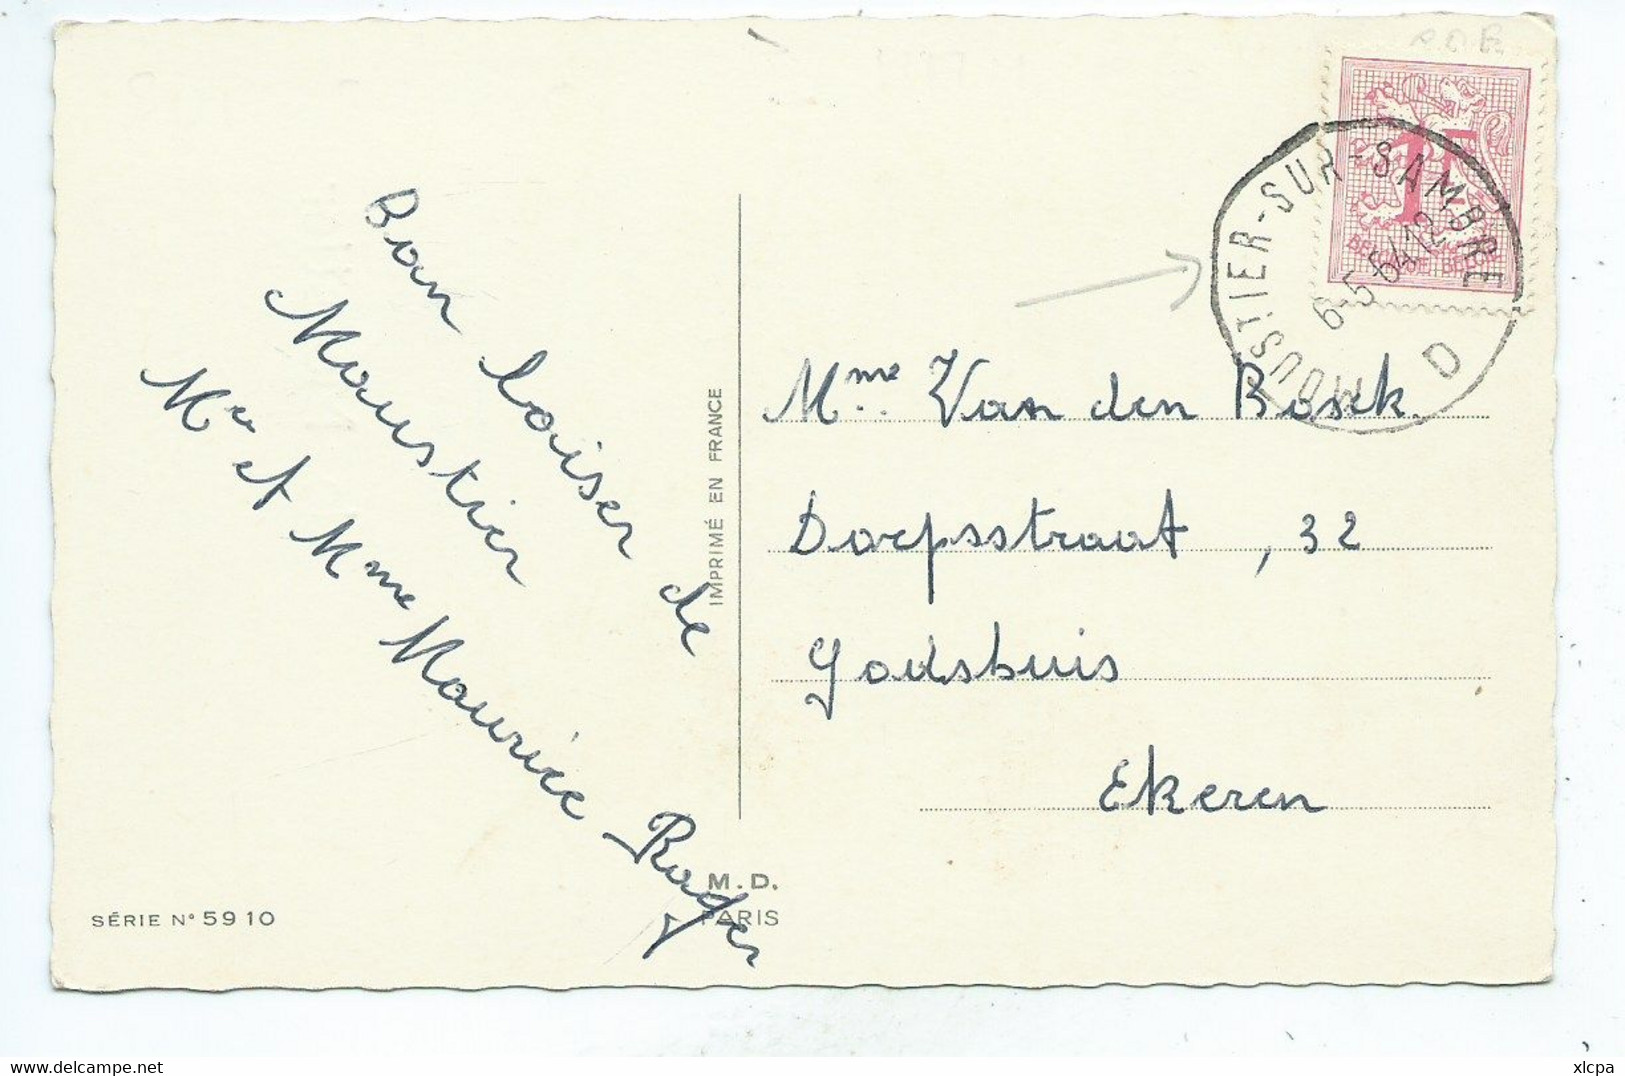 Bon baiser de
Moustier
Mr et Mme Maurice Roger
IMPRIMÉ EN FRANCE
M.D.
PARIS
SÉRIE N° 5910
1F
BELGIQUE BELGIE
MOUSTIER-SUR-SAMBRE
D
Mme Van den Bosck
Dorpsstraat, 32
Godshuis
Ekeren
www.delcampe.net
xlcpa